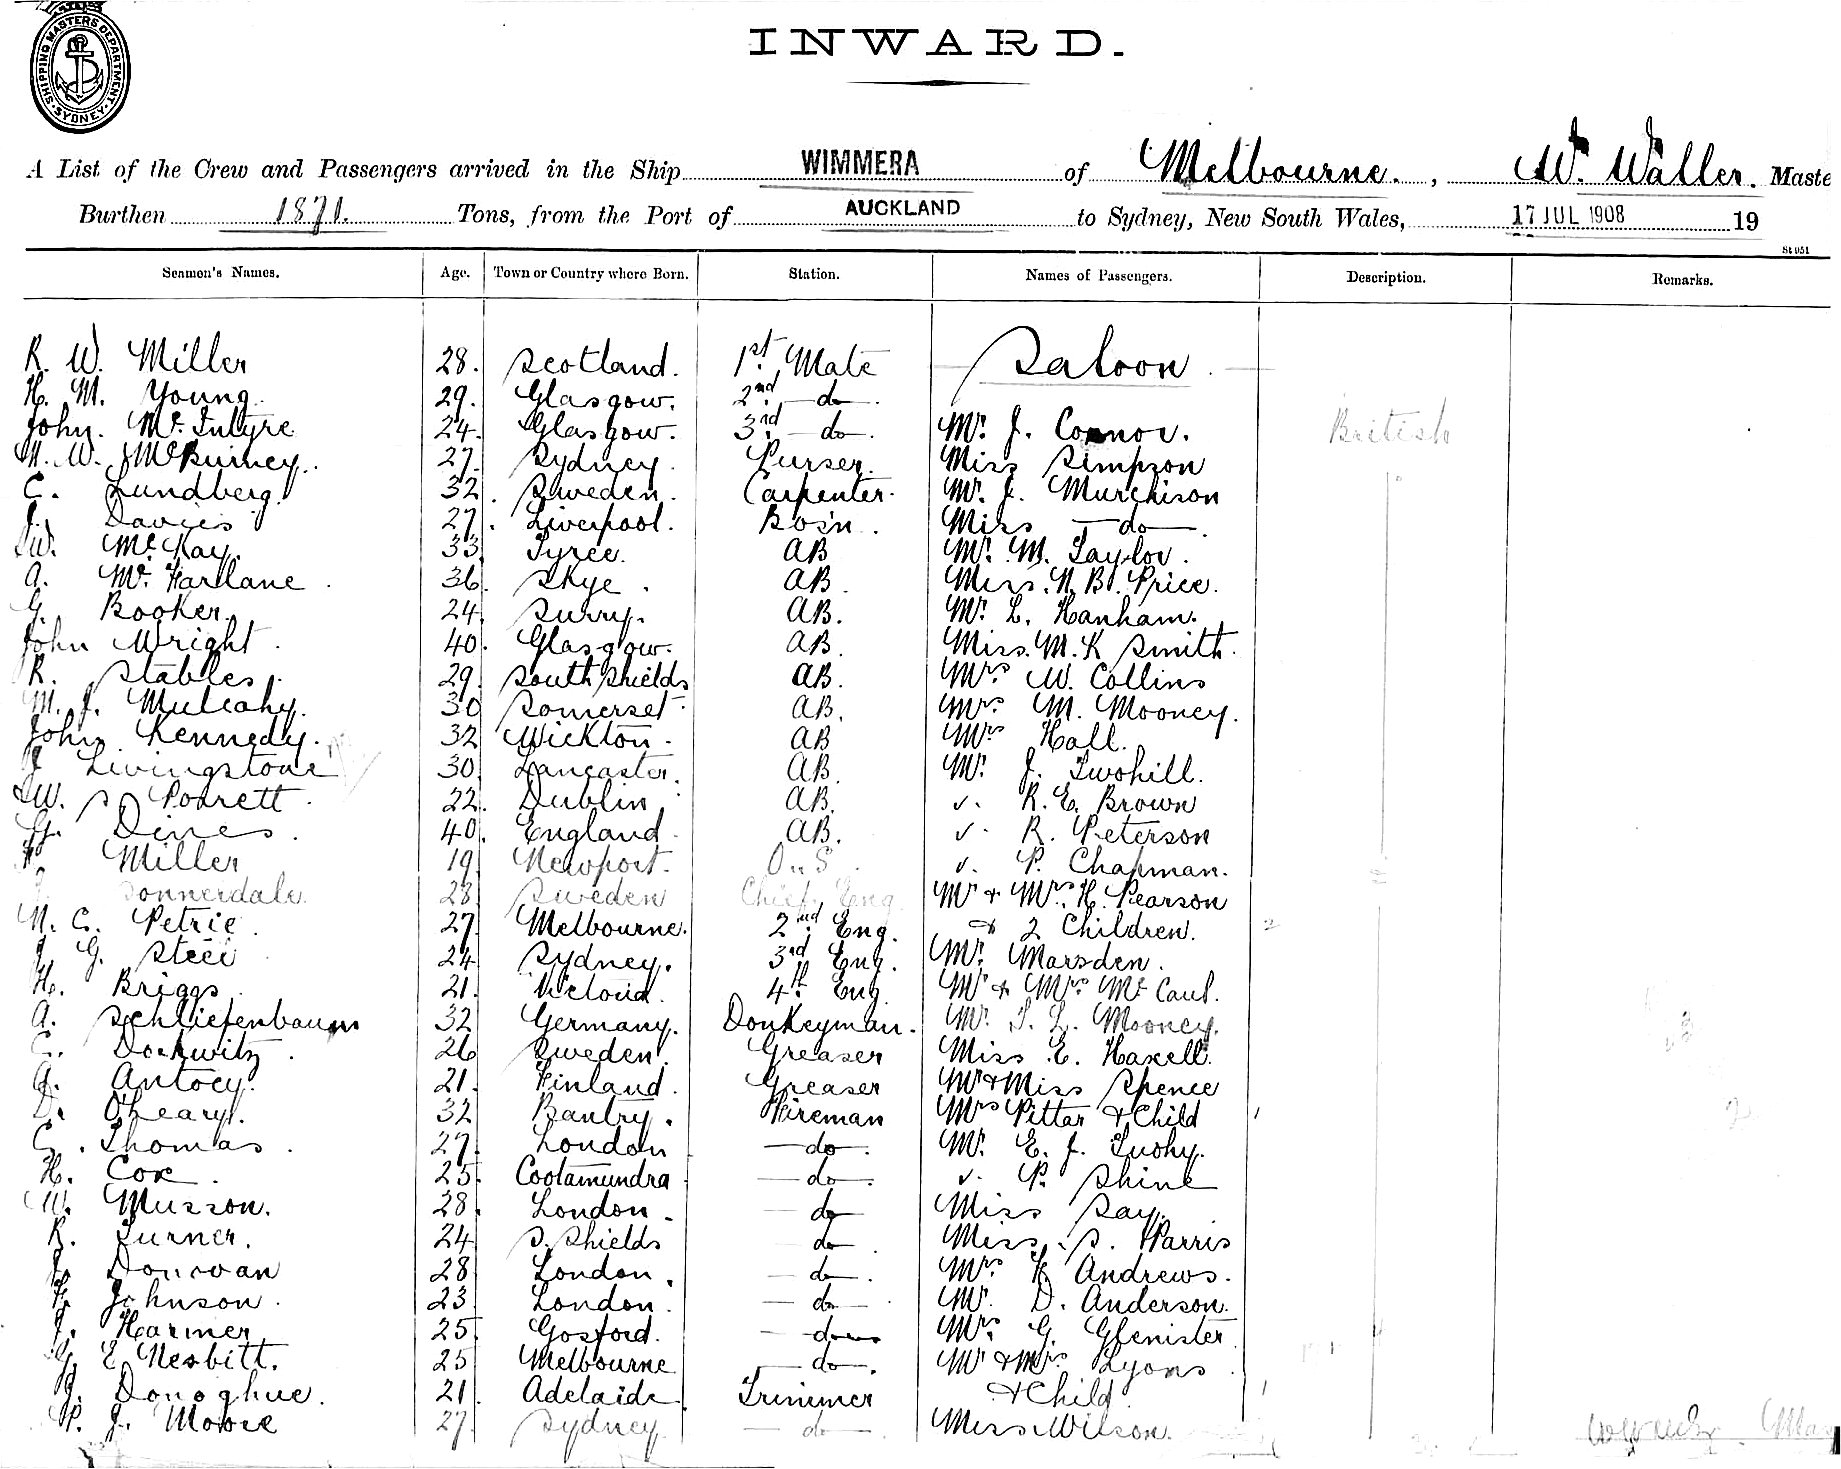 SHIPPING MASTERS DEPARTMENT SYDNEY
INWARD.
A List of the Crew and Passengers arrived in the Ship WIMMERA of Melbourne., W. Waller. Maste
Burthen 1871. Tons, from the Port of AUCKLAND to Sydney, New South Wales, 17 JUL 1908 19
St 051
Seamen's Names. Age. Town or Country where Born. Station. Names of Passengers. Description. Remarks.
R. W. Miller 28. Scotland. 1st Mate Saloon
H. M. Young. 29. Glasgow. 2nd do.
John. McIntyre 24. Glasgow. 3rd do. Mr. J. Connor. British
W. McBurney. 27. Sydney. Purser. Miss Simpson
C. Lundberg. 32. Sweden. Carpenter. Mr. J. Murchison
J. Davies 27. Liverpool. Bos'n. Miss do
W. McKay. 33 Tyree. AB Mr. M. Taylor.
A. McFarlane 36. Skye. AB Miss. N. B. Price.
G. Booker. 24. Surry. AB. Mr. L. Hanham.
John Wright. 40. Glasgow. AB. Miss. M. K Smith.
R. Stables. 29. South Shields AB. Mrs W. Collins
M. J. Mulcahy. 30 Somerset. AB. Mrs M. Mooney.
John Kennedy. 32 Wickton. AB Mrs Hall.
J Livingstone 30. Lancaster. AB. Mr. J. Twohill.
W. S Porrett. 22. Dublin. AB. R. E. Brown
G. Dines. 40. England. AB. R. Peterson
Miller 19. Newport. O.S P. Chapman.
Sonnerdale. 28. Sweden Chief Eng. Mr & Mrs. H. Pearson
N. C. Petrie. 27. Melbourne. 2nd Eng. & 2 Children. 2
J G. Steel 24 Sydney. 3rd Eng. Mr. Marsden.
H. Briggs. 21. Victoria. 4th Eng. Mr & Mrs McCaul.
A. Schliefenbaum 32 Germany. Donkeyman. Mr. T. L. Mooney.
C. Dockwitz. 26 Sweden. Greaser Miss E. Haxell.
A. Antocy. 21. Finland. Greaser Mr & Miss Spence
D. O'Leary. 32 Bantry. Fireman Mrs Pittar & Child 1
C. Thomas. 27. London do. Mr. E. J. Tuohy.
H. Cox. 25. Cootamundra do. P. Shine
W. Musson. 28. London. do Miss Say.
R. Turner. 24 S. Shields do. Miss. S. Harris
J. Donovan 28 London. do. Mrs F. Andrews.
F. Johnson. 23 London. do Mr. D. Anderson.
J. Harmer 25. Gosford. do Mrs. G. Glenister
G E Nesbitt. 25 Melbourne do. Mr & Mrs Lyons
J. Donoghue. 21. Adelaide. Trimmer & Child 1
P. J. Moore 27. Sydney do. Miss. Wilson.